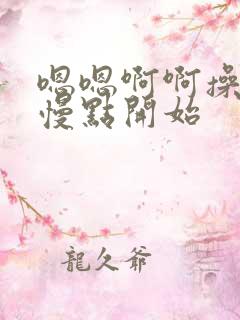 嗯嗯啊啊操
慢點開始
龍久爺